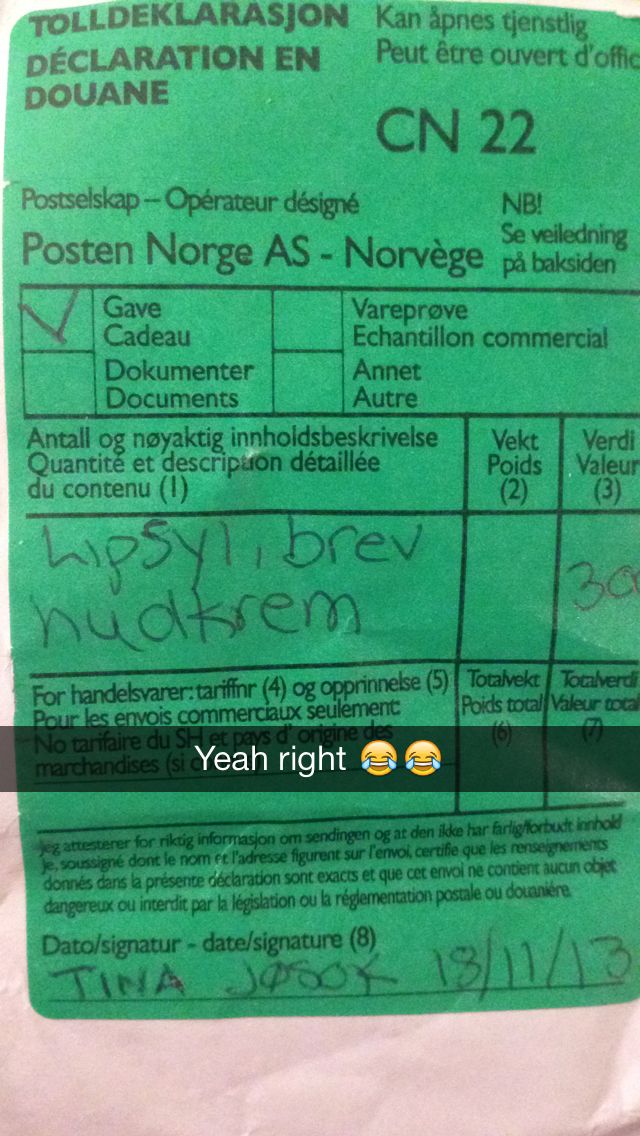 TOLLDEKLARASJON
DÉCLARATION EN
DOUANE
Kan åpnes tjenstlig
Peut être ouvert d'offic
CN 22
Postselskap – Opérateur désigné
Posten Norge AS - Norvège
NB!
Se veiledning
på baksiden
Gave
Cadeau
Vareprøve
Echantillon commercial
Dokumenter
Documents
Annet
Autre
Antall og nøyaktig innholdsbeskrivelse
Quantité et description détaillée
du contenu (1)
Vekt
Poids
(2)
Verdi
Valeur
(3)
Lipsyl, brev
hudkrem
300
For handelsvarer: tariffnr (4) og opprinnelse (5)
Pour les envois commerciaux seulement
No tarifaire du SH et pays d' origine des
marchandises (si
Totalvekt
Poids total
(6)
Totalverdi
Valeur total
(7)
Yeah right 😂😂
Jeg attesterer for riktig informasjon om sendingen og at den ikke har farlig/forbudt innhold
Je, soussigné dont le nom et l'adresse figurent sur l'envoi, certifie que les renseignements
donnés dans la présente déclaration sont exacts et que cet envoi ne contient aucun objet
dangereux ou interdit par la législation ou la réglementation postale ou douanière.
Dato/signatur - date/signature (8)
TINA JØSOK 18/11/13